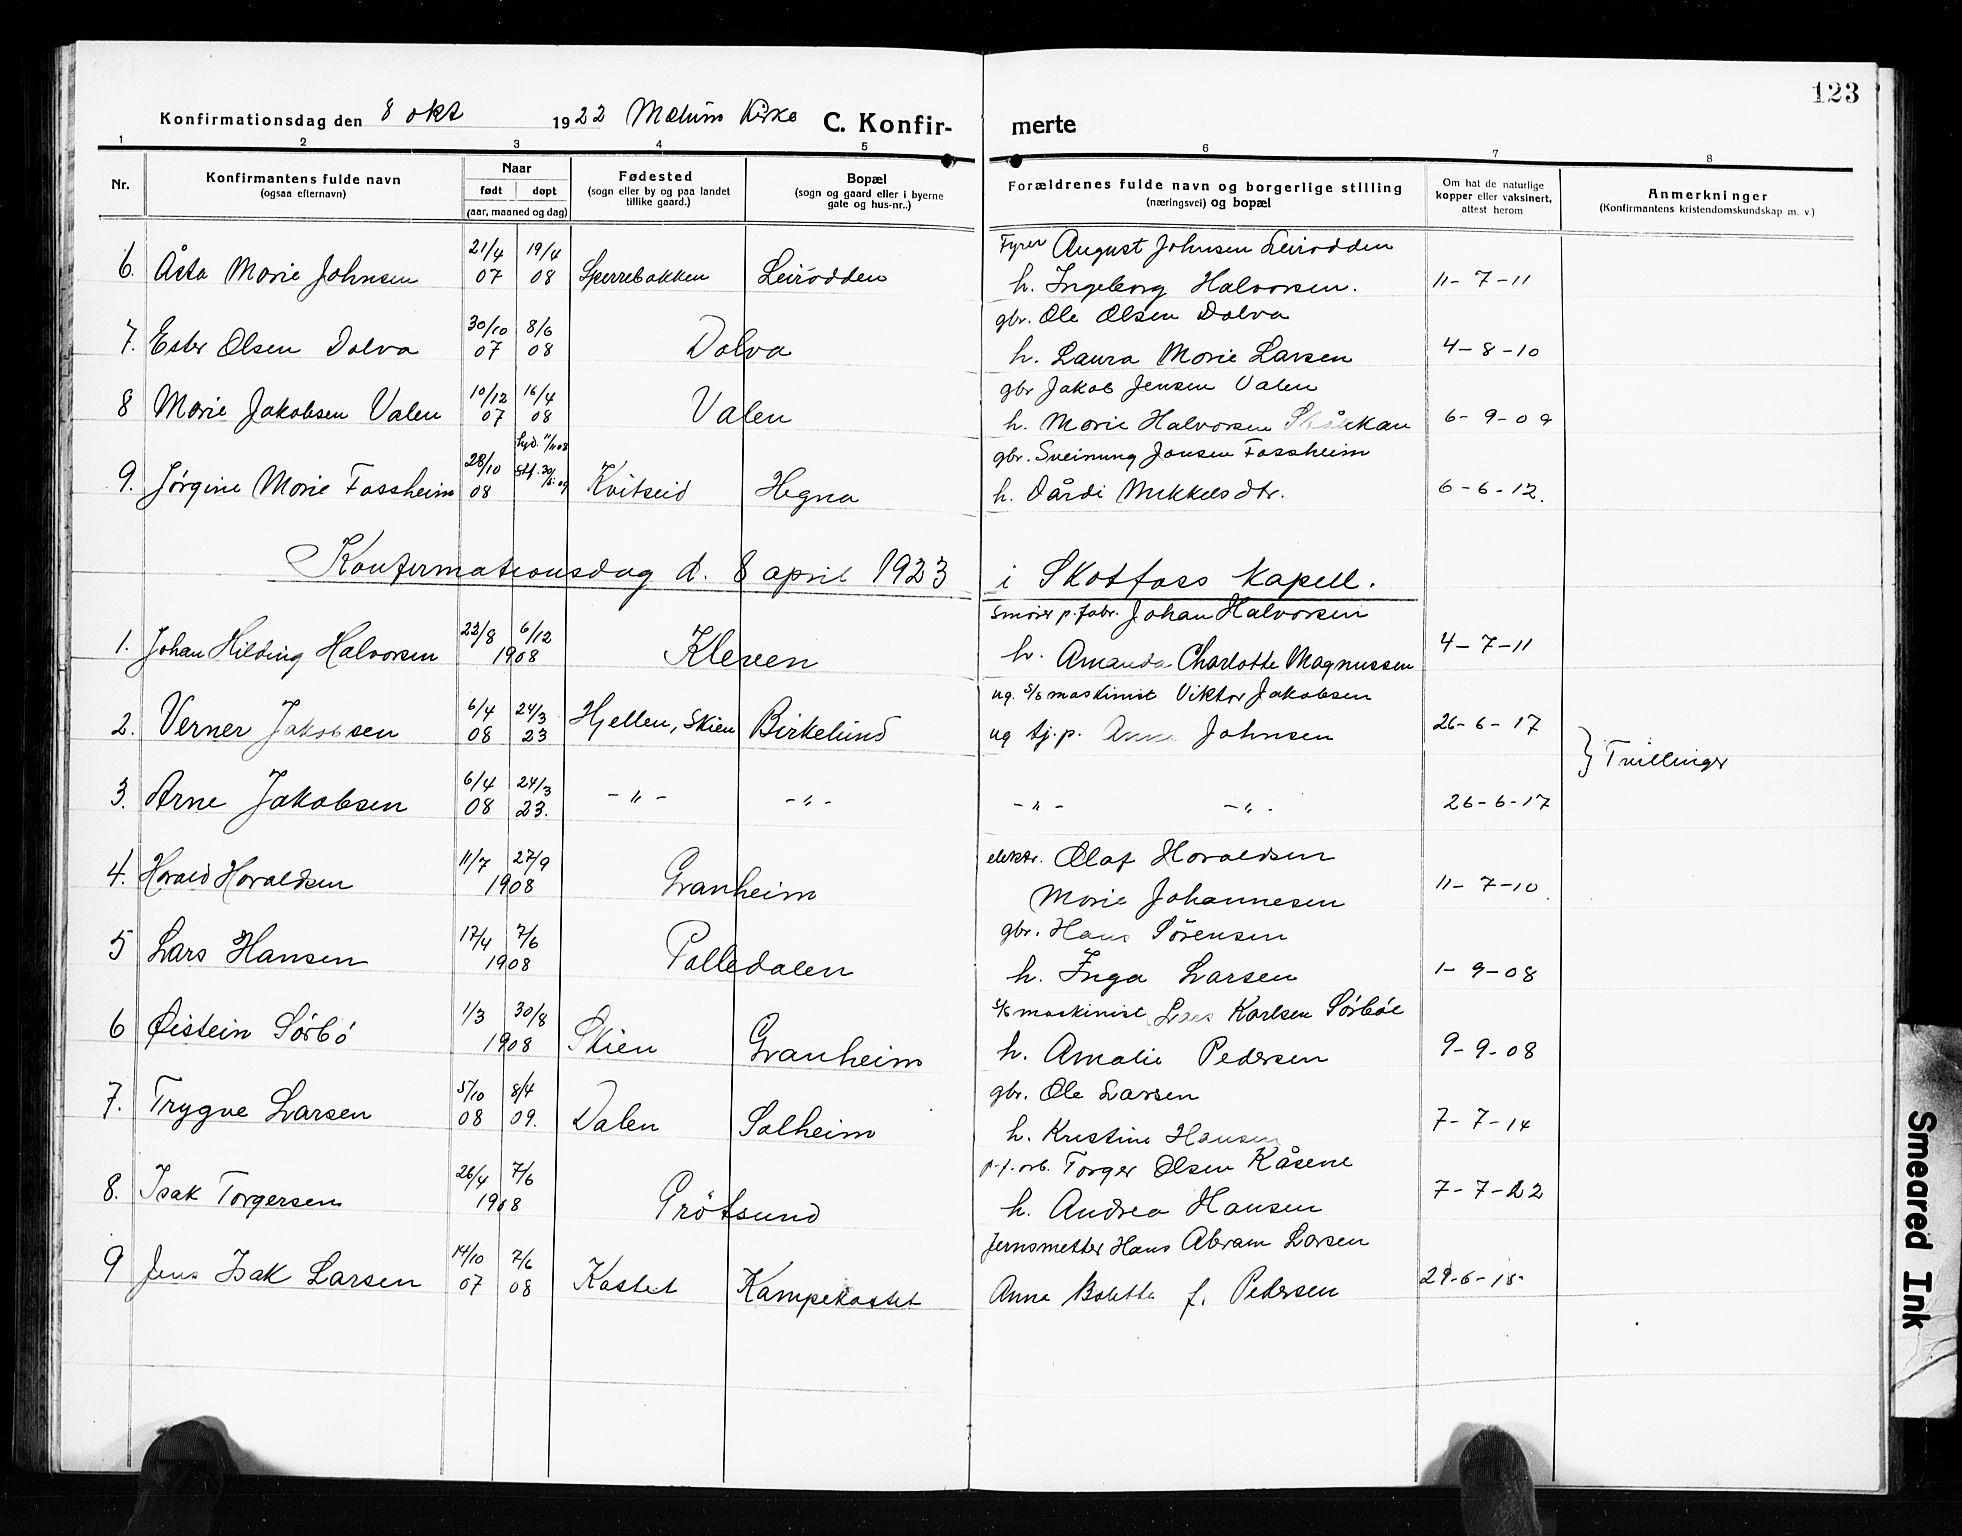 123
Konfirmationsdag den 8 okt 1922 Melum Kirke C. Konfir- merte
1 2 3 4 5 6 7 8
Nr.
Konfirmantens fulde navn
(ogsaa efternavn)
Naar
født døpt
(aar, maaned og dag)
Fødested
(sogn eller by og paa landet
tillike gaard.)
Bopæl
(sogn og gaard eller i byerne
gate og hus-nr..)
Forældrenes fulde navn og borgerlige stilling
(næringsvei) og bopæl
Om hat de naturlige
kopper eller vaksinert,
attest herom
Anmerkninger
(Konfirmantens kristendomskundskap m. v.)
21/4 19/4 Fyrer August Johnsen Leirodden
6. Åsta Marie Johnsen 07 08 Sperrebakken Leirodden h. Ingeborg Halvorsen. 11-7-11
30/10 8/6 gbr. Ole Olsen Dalva
7. Ester Olsen Dalva 07 08 Dalva h. Laura Marie Larsen 4-8-10
10/12 16/4 gbr Jakob Jensen Valen
8 Marie Jakobsen Valen 07 08 Valen h. Marie Halvorsen 6-9-09
28/10 gbr. Sveinung Jonsen Fossheim
9. Jørgine Marie Fossheim 08 Kvitseid Hegna h. Dårdi Mikkelsdtr. 6-6-12.
Konfirmationsdag d. 8 april 1923 i Skotfoss Kapell.
23/8 6/12 Smører p. fabr. Johan Halvorsen
1. Johan Hilding Halvorsen 1908 Kleven h. Amanda Charlotte Magnussen 4-7-11
6/4 24/3 ug. s/s maskinist Viktor Jakobsen
2. Verner Jakobsen 08 23 Hjellen, Skien Birkelund ug tj.p. Anna Johnsen 26-6-17
} Tvillinger
6/4 24/3
3. Arne Jakobsen 08 23. -"- -"- -"- -"- 26-6-17
11/7 27/9 elektr. Olaf Haraldsen
4. Harald Haraldsen 1908 Granheim Marie Johannesen 11-7-10
17/4 7/6 gbr. Hans Sörensen
5 Lars Hansen 1908 Polledalen h. Inga Larsen 1-9-08
1/3 30/8 s/s maskinist Lars Karlsen Sörböe
6 Øistein Sörbö 1908 Skien Granheim h. Amalie Pedersen 9-9-08
5/10 8/4 gbr. Ole Larsen
7. Trygve Larsen 08 09. Dalen Solheim h. Kristine Hansen 7-7-14
26/4 7/6 p.f. arb. Torger Olsen Kåsene
8. Isak Torgersen 1908 Grötsund h. Andrea Hansen 7-7-22
14/10 7/6 Jernsmelter Hans Abram Larsen
9 Jens Isak Larsen 07 08 Kastet Kampekastet Anna Bolette f. Pedersen 29-6-15
Smeared Ink